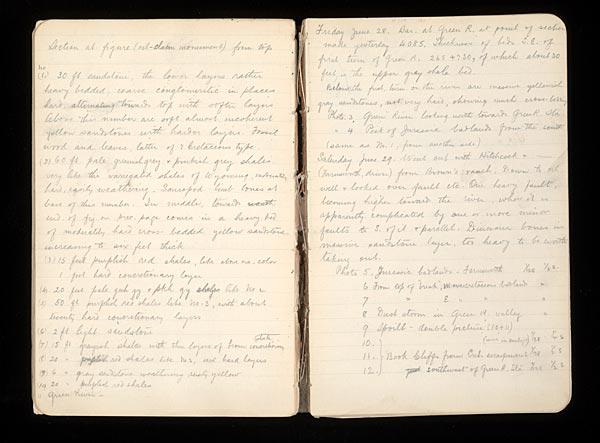 Section at figure (oil-claim monument) from top
no
(1) 30 ft sandstone, the lower layers rather
heavy bedded, coarse conglomeritic in places
hard, alternating towards top with softer layers
above this number are soft almost incoherent
yellow sandstones with harder layers. Fossil
wood and leaves, latter of ? Cretaceous type.
(2) 60 ft pale greenish grey + pinkish grey shales
very like the variegated shales of Wyoming,
hard, easily weathering. Sauropod limb bones at
base of this number. In middle, toward
end of fig on prec. page comes in a heavy bed
of moderately hard cross bedded yellow sandstone
increasing to six feet thick
(3) 15 feet purplish red shales, like above no. color
1 foot hard concretionary layer
(4) 20 feet pale gnh gy + pkh gy shales like No 2
(5) 50 ft purplish red shales like No. 3, with about
twenty hard concretionary layers
(6) 2 ft light sandstone
(7) 15 ft grayish shales with thin layers of brown concretionary
(8) 20 " red shales like No 3, and hard layers
(9) 6 " gray sandstone weathering rusty yellow
(10) 20 " purpled red shales
Green River
Friday June 28. Bar. at Green R. at point of section
made yesterday 4085. Thickness of beds S.E. of
first turn of Green R. 265 + 730, of which about 30
feet is the upper gray shale bed.
Below the first turn on the river are massive yellowish
gray sandstones, not very hard, showing much cross-bedding
Photo. 3. Green River looking north towards Green R. Sta.
" 4 Part of Jurassic badlands from the south
(same as No. 1, from another side)
Saturday June 29. Went out with Hitchcock +
(Farnsworth, driver) from Brown's ranch. Down to oil
well + looked over fault etc. One heavy fault,
becoming higher toward the river, where it is
apparently complicated by one or more minor
faults to S. of it + parallel. Dinosaur bones in
massive sandstone layer, too heavy to be worth
taking out.
Photo 5. Jurassic badlands - Farnsworth
6 From top of butte, badland
7 " E " "
8 Dust storm in Green R. valley "
9 Spoilt - double picture (10+11)
10.
11. Book Cliffs from escarpment
12. southwest of Green R. Sta